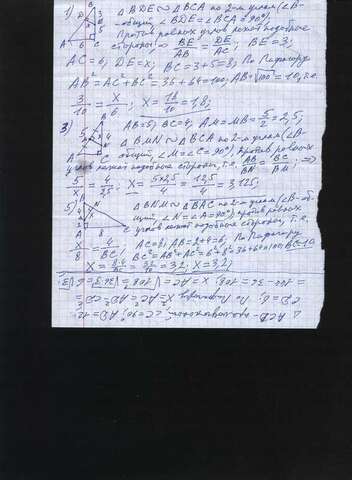 1) △BDE ∾ △BCA по 2-м углам (∠B-
общий, ∠BDE=∠BCA=90°)
Против равных углов лежат подобные
стороны, ⇒ BE/AB = DE/AC; BE=3;
AC=6; DE=x; BC=3+5=8; По Пифагору
AB²=AC²+BC²=36+64=100; AB=√100=10, т.е.
3/10 = x/6; x=18/10=1,8;
3) AB=5; BC=4; AM=MB=5/2=2,5;
△BMN ∾ △BCA по 2-м углам (∠B-
общий, ∠M=∠C=90°), против равных
углов лежат подобные стороны, т.е. AB/BN = BC/BM; ⇒
5/x = 4/2,5; x=5×2,5/4=12,5/4=3,125;
5) △BNM ∾ △BAC по 2-м углам (∠B-об-
щий, ∠N=∠A=90°), против равных
углов лежат подобные стороны, т.е.
x/8 = 4/BC; AC=8; AB=2+4=6; По Пифагору
BC²=AB²+AC²=6²+8²=36+64=100 BC=10
x=8·4/10=32/10=3,2; x=3,2;
△ACD - прямоугольный; ∠C=90°; AD=12
CD=6; По Пифагору x²=AC²=AD²-CD²=
=144-36=108; x=AC=√108=√36·3=6√3